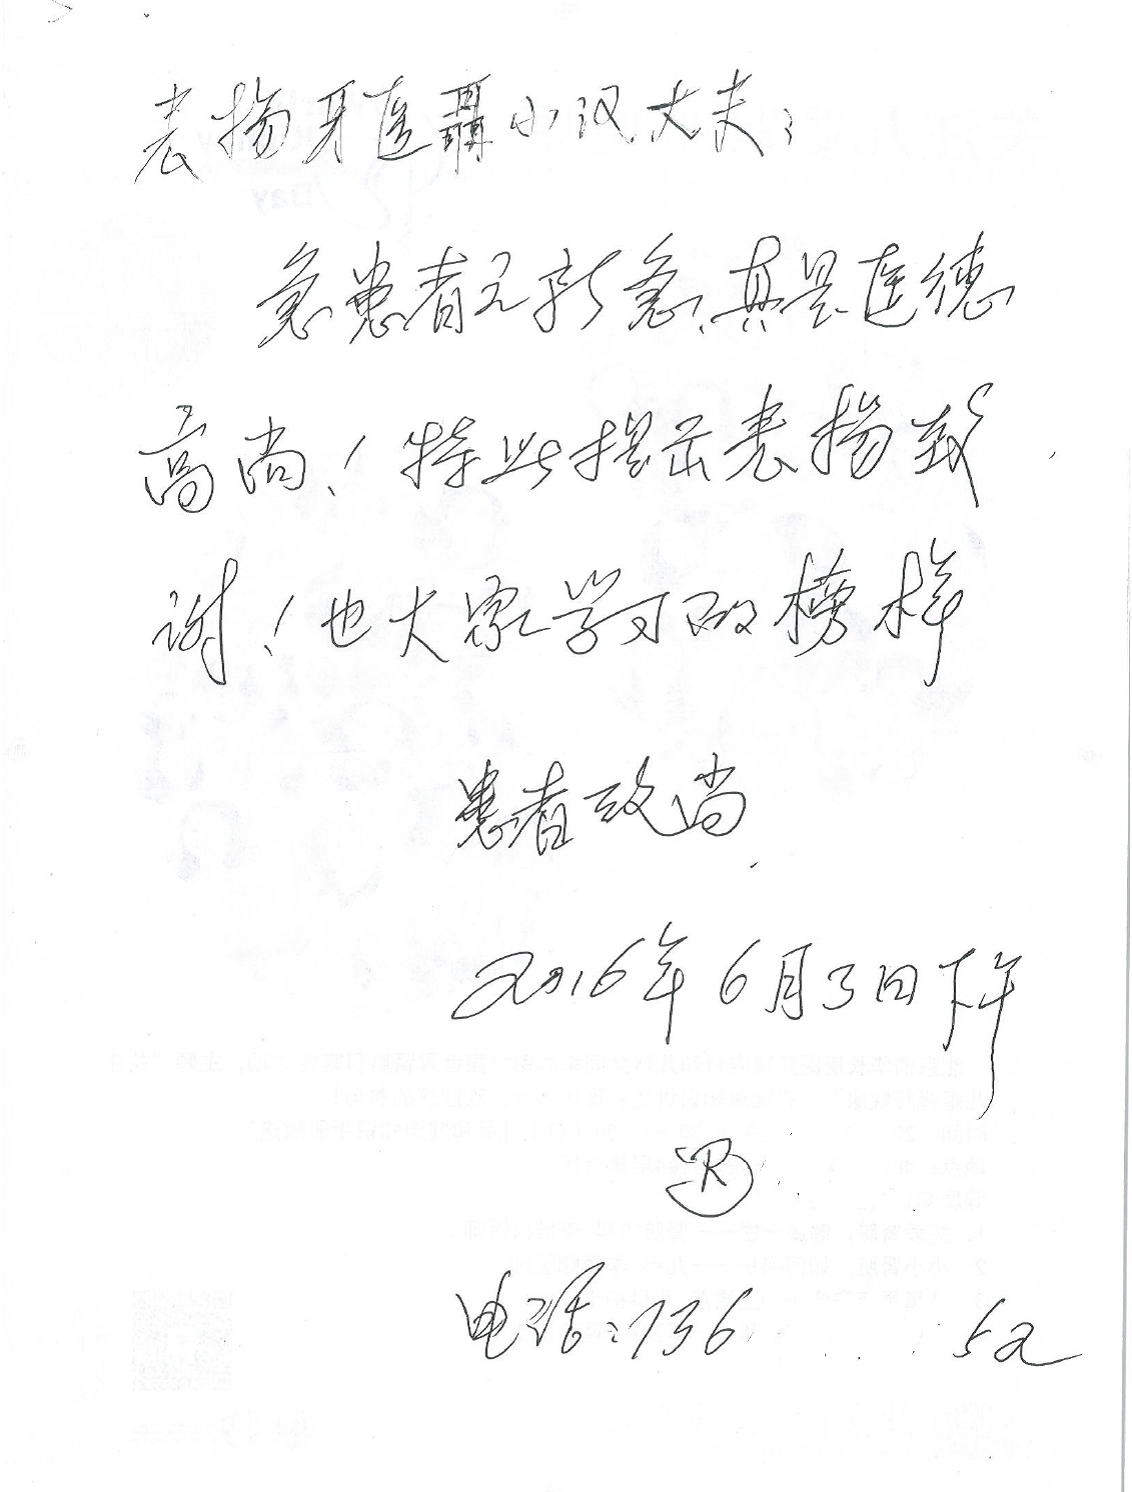 表扬牙医聂小汉大夫：
急患者之所急、真是医德
高尚！特此提出表扬致
谢！也大家学习的榜样
患者
2016年6月3日下午
电话：136 52